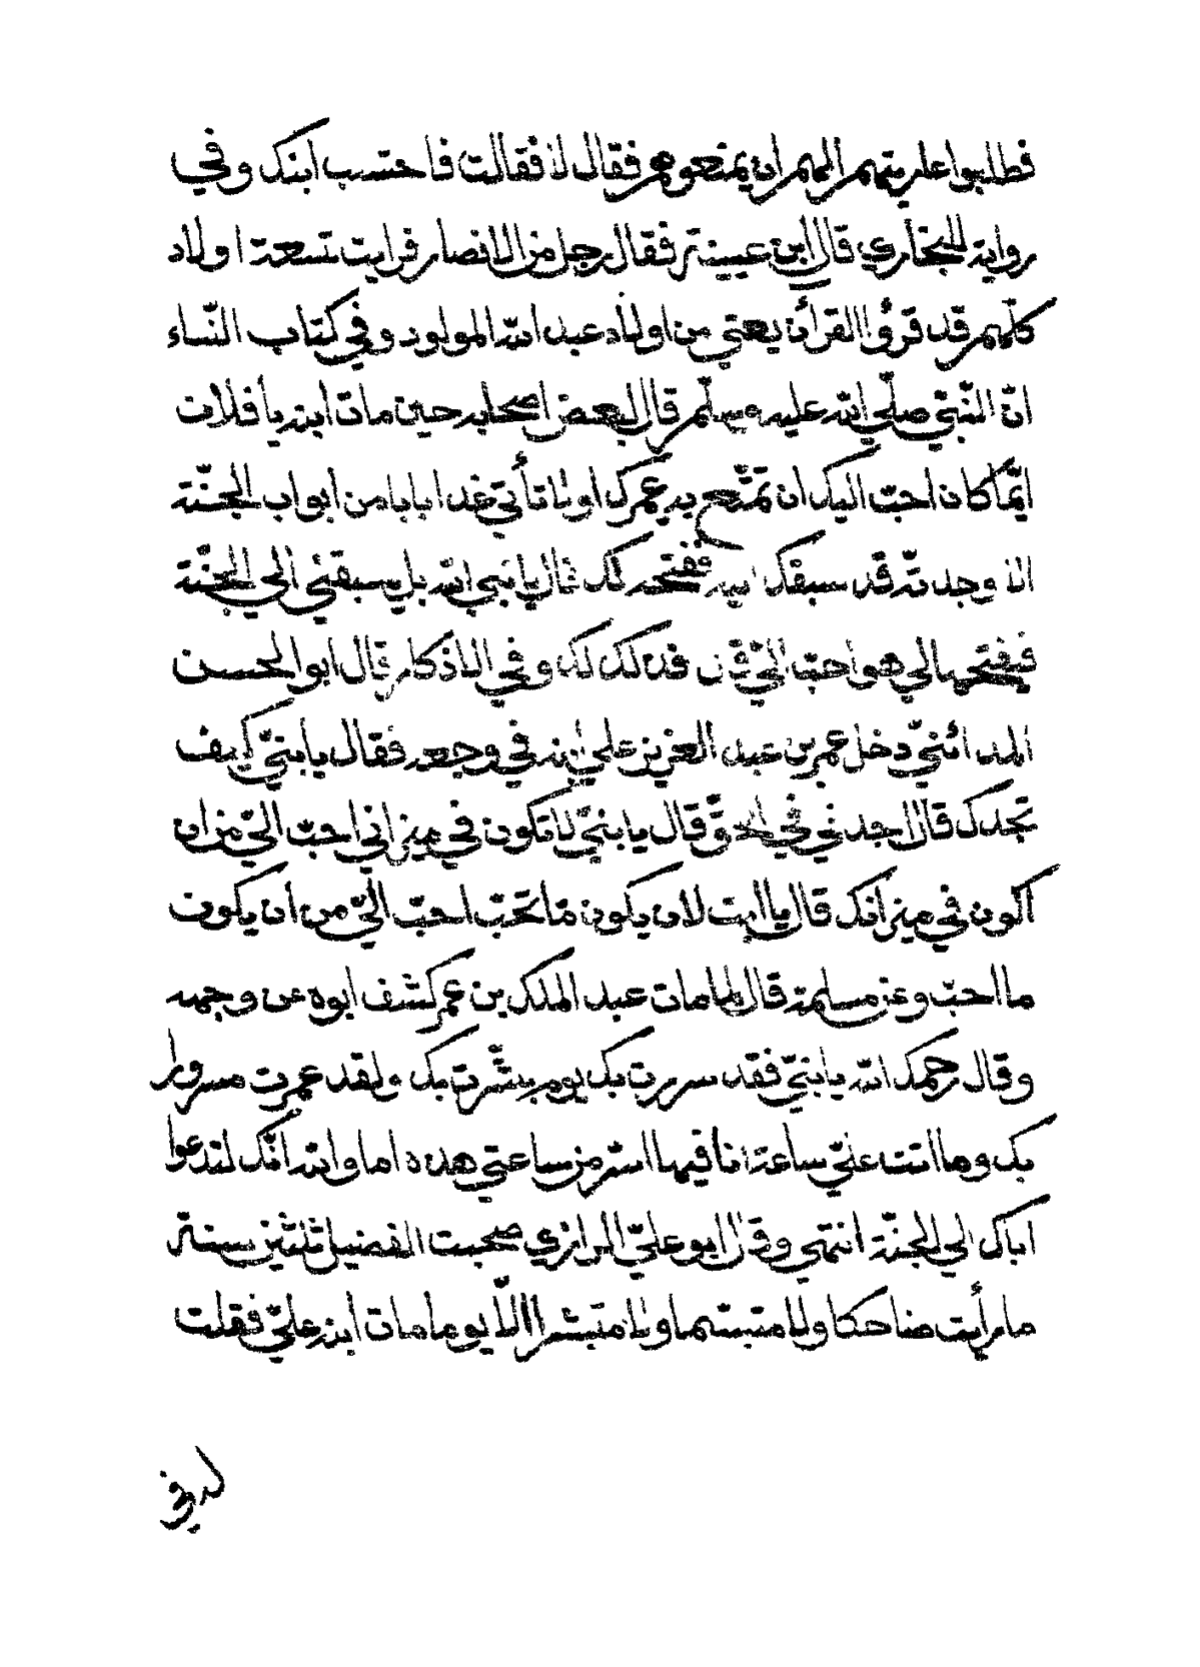 فطلبوا عاريتهم الهم ان يمنعوهم فقال لا فقالت فاحتسب ابنك وفي
رواية للبخاري قال ابن عيينة فقال رجل من الانصار فرايت تسعة اولاد
كلّهم قد قرؤا القرأن يعني من اولاد عبد الله المولود وفي كتاب النّساء
انّ النّبيّ صلّي الله عليه وسلّم قال لبعض اصحابه حين مات ابنه يا فلان
ايّما كان احبّ اليك ان تمتّع به عمرك او لا تأتي غدا بابا من ابواب الجنّة
الا وجدته قد سبقك اليه ففتحه لك قال يا نبي الله بل يسبقني الي الجنّة
فيفتحها لي هو احبّ اليّ قال فذلك لك وفي الاذكار قال ابو الحسن
المدائنيّ دخل عمر بن عبد العزيز علي ابنه في وجعه فقال يا بنيّ كيف
تجدك قال اجدني في الحقّ قال يا بنيّ لا تكون في ميزاني احبّ اليّ من ان
اكون في ميزانك قال يا ابت لان يكون ما تحبّ احبّ اليّ من أن يكون
ما احبّ وعن مسلمة قال لما مات عبد الملك بن عمر كشف ابوه عن وجهه
وقال رحمك الله يا بنيّ فقد سررت بك يوم بشّرت بك ولقد عمرت مسرورا
بك وما اتت عليّ ساعة انا فيها اسر من ساعتي هذه اما والله انّك لتدعوا
اباك الي الجنّة انتهي وقال ابو عليّ الرازي صحبت الفضيل ثلثين سنة
ما رأيت ضاحكا ولا متبسّما ولا متبشرا الّا يوما مات ابنه عليّ فقلت
له في